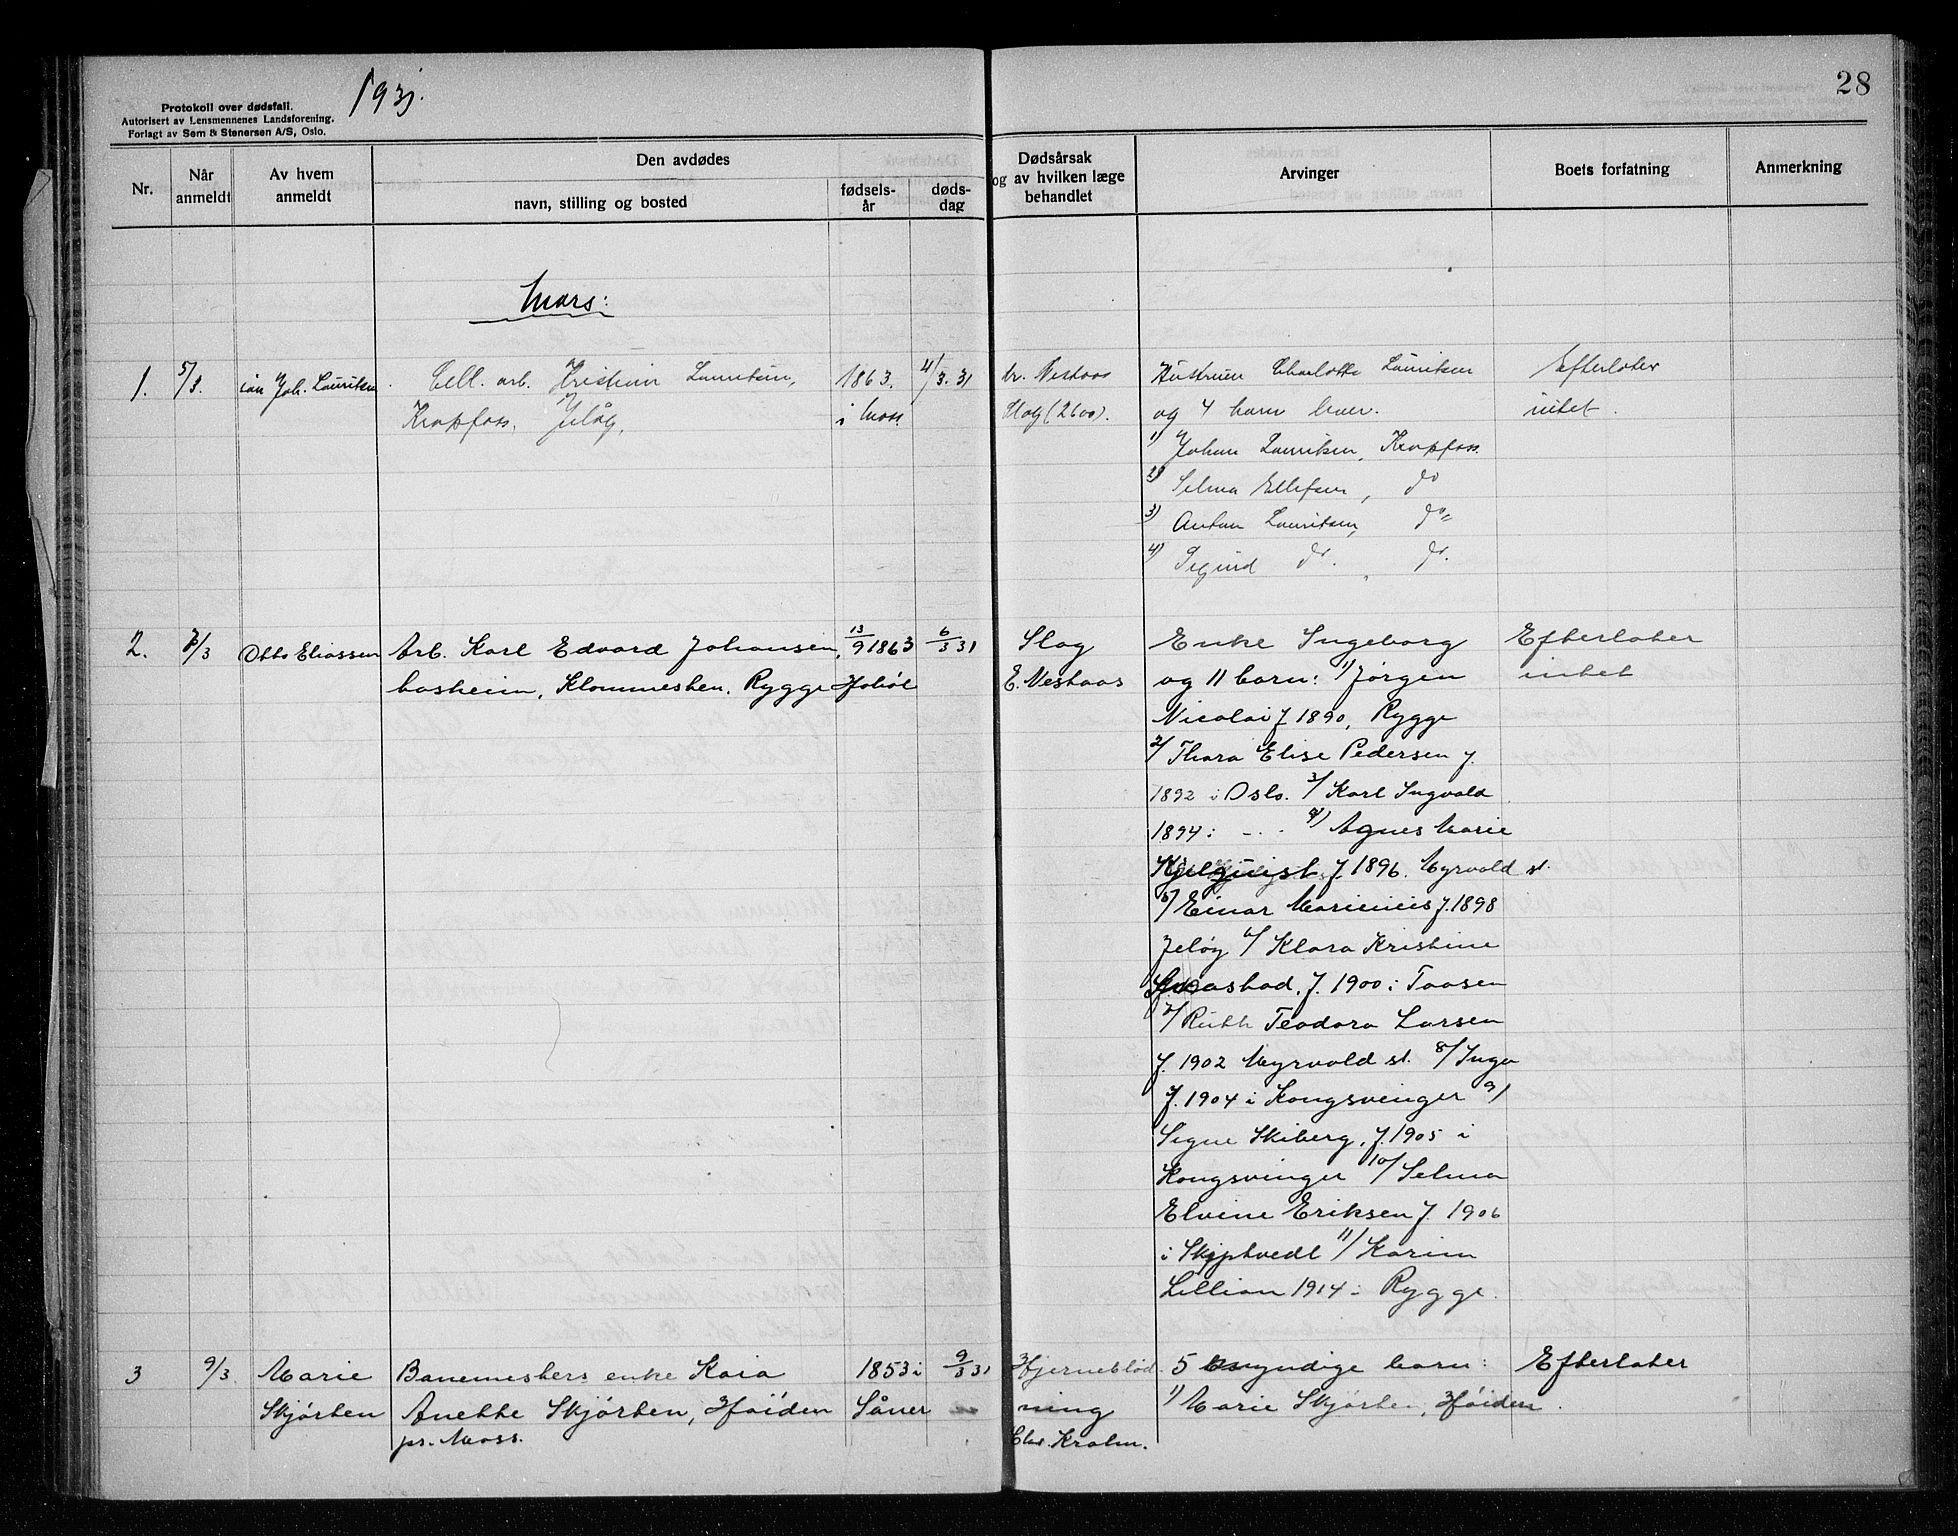 1931.
28
Protokoll over dødsfall.
Autorisert av Lensmennenes Landsforening.
Forlagt av Sem & Stenersen A/S, Oslo.
Nr.
Når anmeldt
Av hvem anmeldt
Den avdødes
navn, stilling og bosted
fødselsår
dødsdag
Dødsårsak og av hvilken læge behandlet
Arvinger
Boets forfatning
Anmerkning
Mars:
1. 5/3. Joh. Lauritsen Cell. arb. Kristian Lauritsen, 1863. 4/3.31 dr. Nestaas Hustruen Charlotte Lauritsen Efterlater
Krapfoss, Jeløy, i Moss. Slag (2600). og 4 barn lever. intet.
1) Johan Lauritsen, Krapfoss.
2) Selma Ellefsen, do
3) Anton Lauritsen, do
4) Sigurd do. do.
2. 7/3 Otto Eliassen Arb. Karl Edvard Johansen, 13/9 1863 6/3 31 Slag Enke Ingeborg Efterlater
Klommesten, Rygge Hobøl E. Nestaas og 11 barn: 1/ Jørgen intet
Nicolai f. 1890, Rygge
2/ Thora Elise Pedersen f.
1892 i Oslo. 3/ Karl Ingvald
1894 i - . . 4/ Agnes Marie
f. 1896. Myrvold st.
5/ Einar Marinius f. 1898
Jeløy 6/ Klara Kristine
f. 1900 i Taasen
7/ Ruth Teodora Larsen
f. 1902 Myrvold st. 8/ Inga
f. 1904 i Kongsvinger 9/
Signe Skiberg, f. 1905 i
Kongsvinger 10/ Selma
Elvine Eriksen f. 1906
i Skiptvedt 11/ Karin
Lillian 1914 i Rygge.
3 9/3 Marie Banemesters enke Kaia 1853 i 9/3 31 Hjerneblød 5 myndige barn: Efterlater
Skjørten Anette Skjørten, Høiden Såner ning 1) Marie Skjørten, Høiden.
pr. Moss. Chr. Krohn.